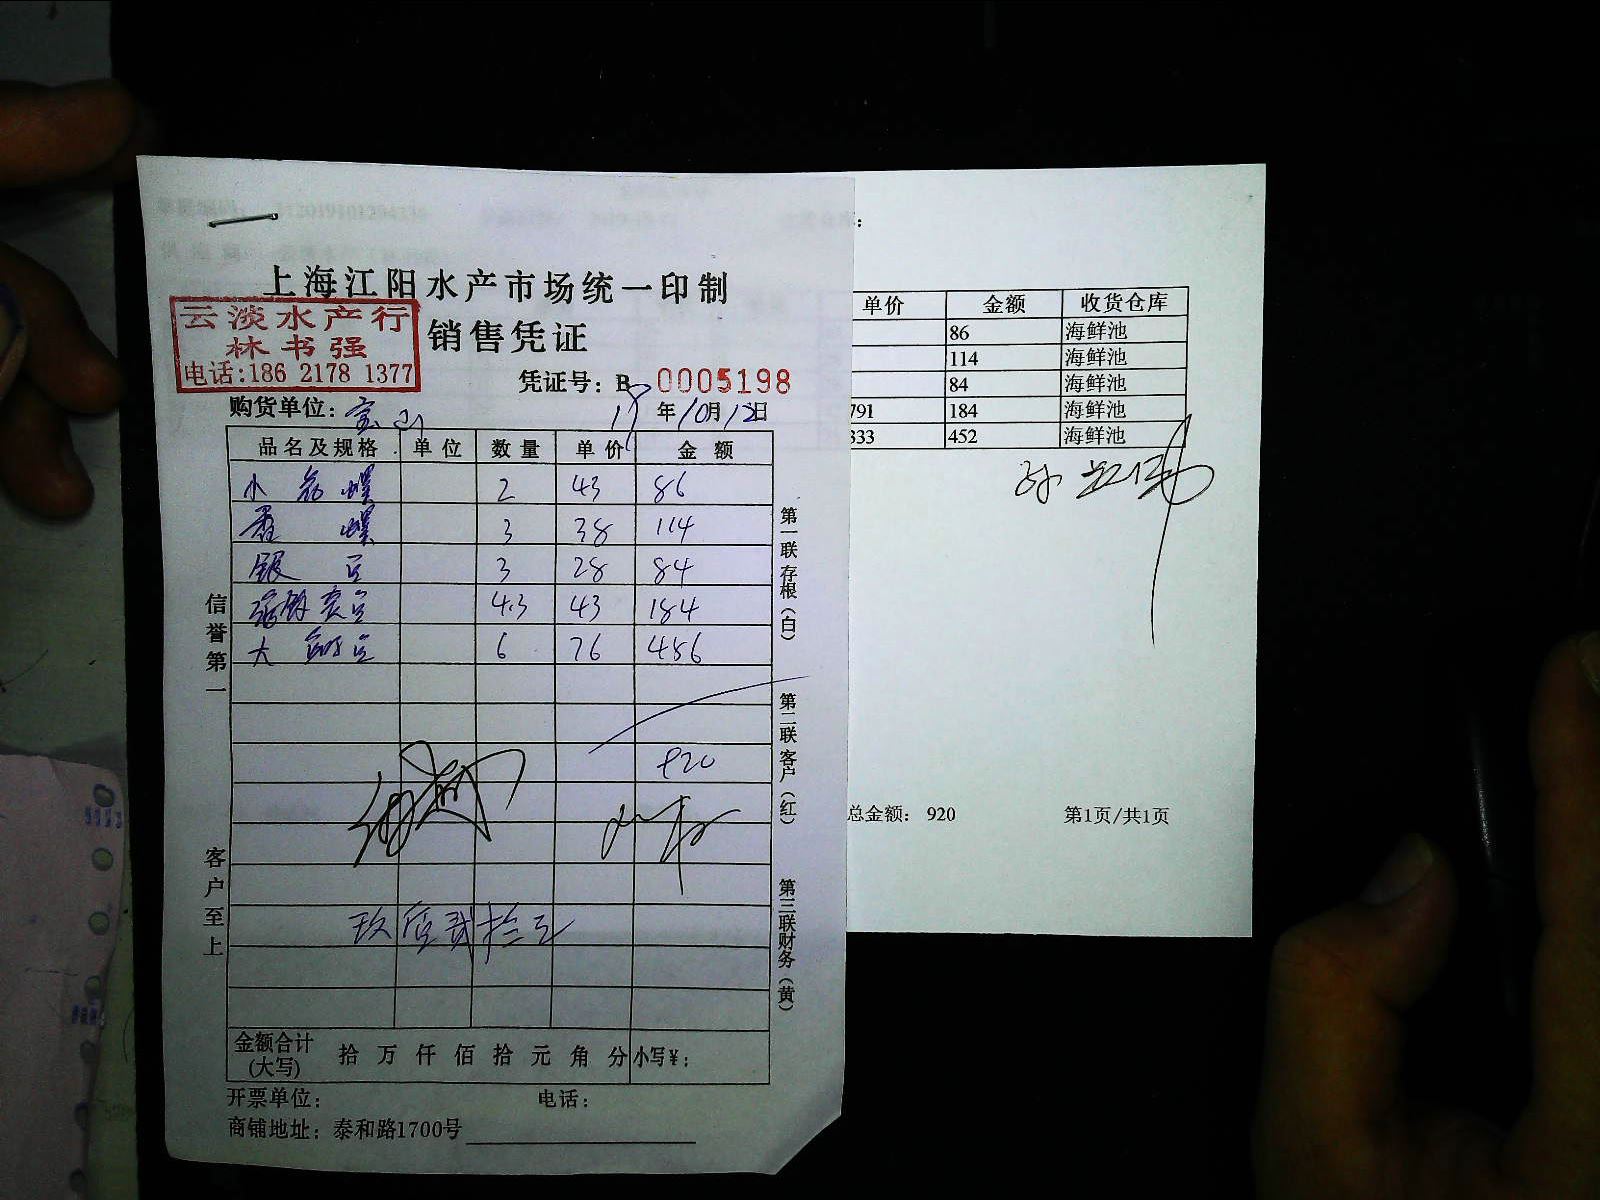 上海江阳水产市场统一印制
云淡水产行
林书强
电话:186 2178 1377
销售凭证
凭证号: B 0005198
购货单位: 宝山 19年10月12日
品名及规格 单位 数量 单价 金额
小 螺 2 43 86
香 螺 3 38 114
银 3 28 84
4.3 43 184
大 6 76 456
920
玖佰贰拾元
金额合计(大写) 拾 万 仟 佰 拾 元 角 分 小写¥:
开票单位: 电话:
商铺地址: 泰和路1700号
信誉第一
客户至上
第一联存根(白)
第二联客户(红)
第三联财务(黄)
单价 金额 收货仓库
86 海鲜池
114 海鲜池
84 海鲜池
791 184 海鲜池
333 452 海鲜池
总金额: 920 第1页/共1页